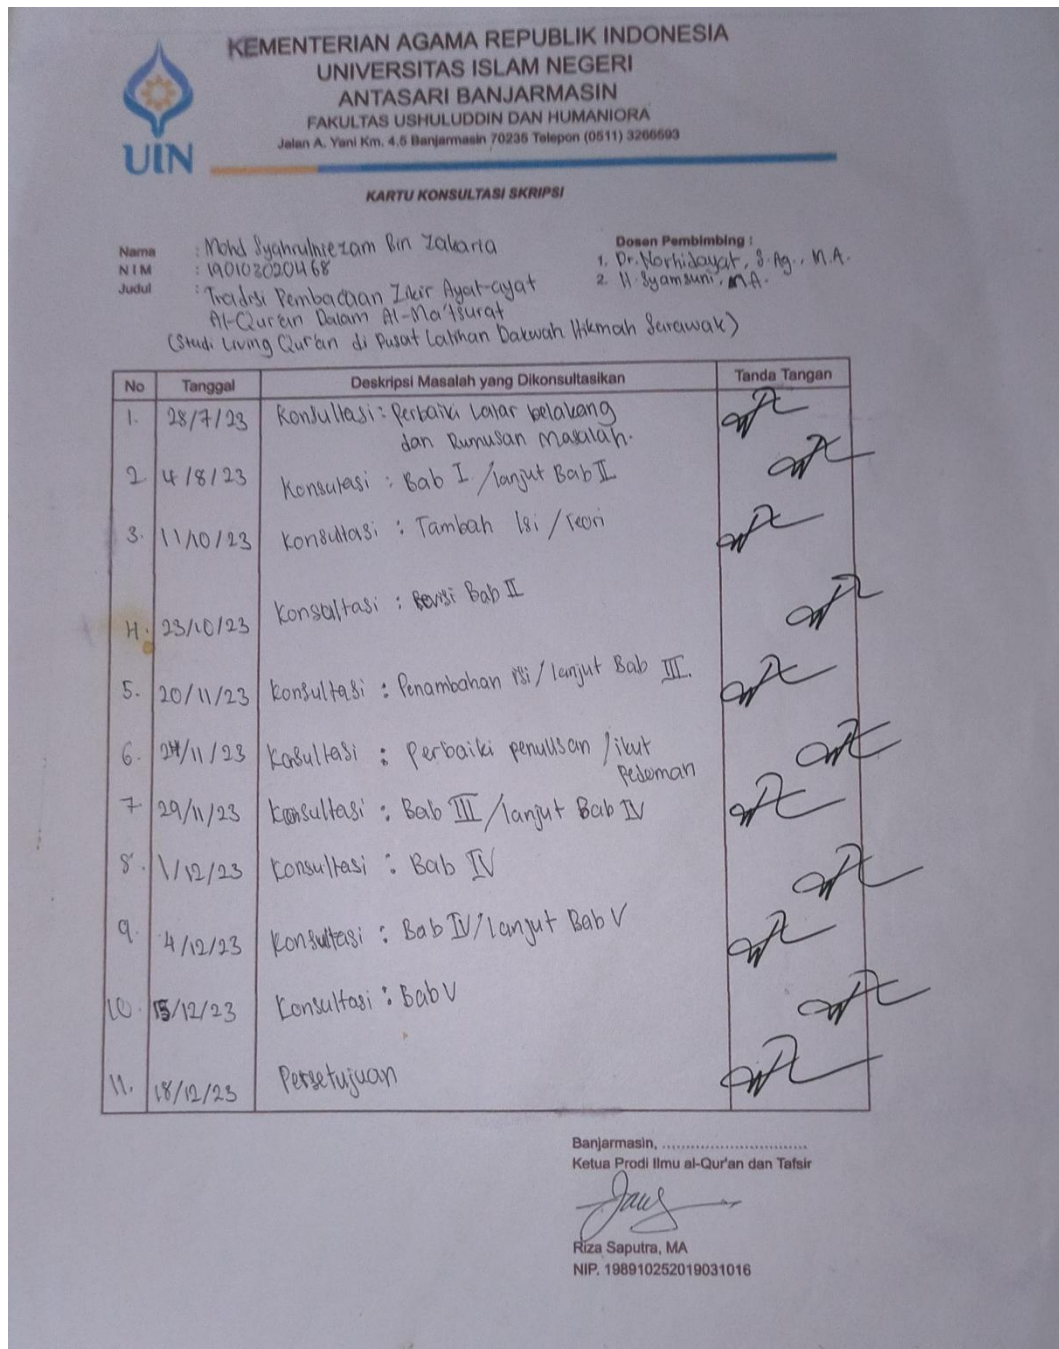 KEMENTERIAN AGAMA REPUBLIK INDONESIA
UNIVERSITAS ISLAM NEGERI
ANTASARI BANJARMASIN
FAKULTAS USHULUDDIN DAN HUMANIORA
Jalan A. Yani Km. 4,5 Banjarmasin 70235 Telepon (0511) 3266593
UIN
KARTU KONSULTASI SKRIPSI
Nama : Mohd Syahrulniezam Bin Zakaria
NIM : 190103020468
Judul : Tradisi Pembacaan Zikir Ayat-ayat
Al-Qur'an Dalam Al-Ma'tsurat
(Studi Living Qur'an di Pusat Latihan Dakwah Hikmah Sarawak)
Dosen Pembimbing :
1. Dr. Norhidayat, S.Ag., M.A.
2. H. Syamsuni, M.A.
No Tanggal Deskripsi Masalah yang Dikonsultasikan Tanda Tangan
1. 28/7/23 Konsultasi : Perbaiki Latar belakang
dan Rumusan Masalah.
2. 4/8/23 Konsutasi : Bab I /lanjut Bab II
3. 11/10/23 Konsultasi : Tambah Isi / Teori
4. 23/10/23 Konsultasi : Revisi Bab II
5. 20/11/23 Konsultasi : Penambahan isi / lanjut Bab III.
6. 24/11/23 Kosultasi : Perbaiki penulisan / ikut
Pedoman
7 29/11/23 Konsultasi : Bab III / lanjut Bab IV
8. 1/12/23 Konsultasi : Bab IV
9. 4/12/23 Konsultasi : Bab IV / lanjut Bab V
10. 15/12/23 Konsultasi : Bab V
11. 18/12/23 Persetujuan
Banjarmasin, ............................
Ketua Prodi Ilmu al-Qur'an dan Tafsir
Riza Saputra, MA
NIP. 198910252019031016